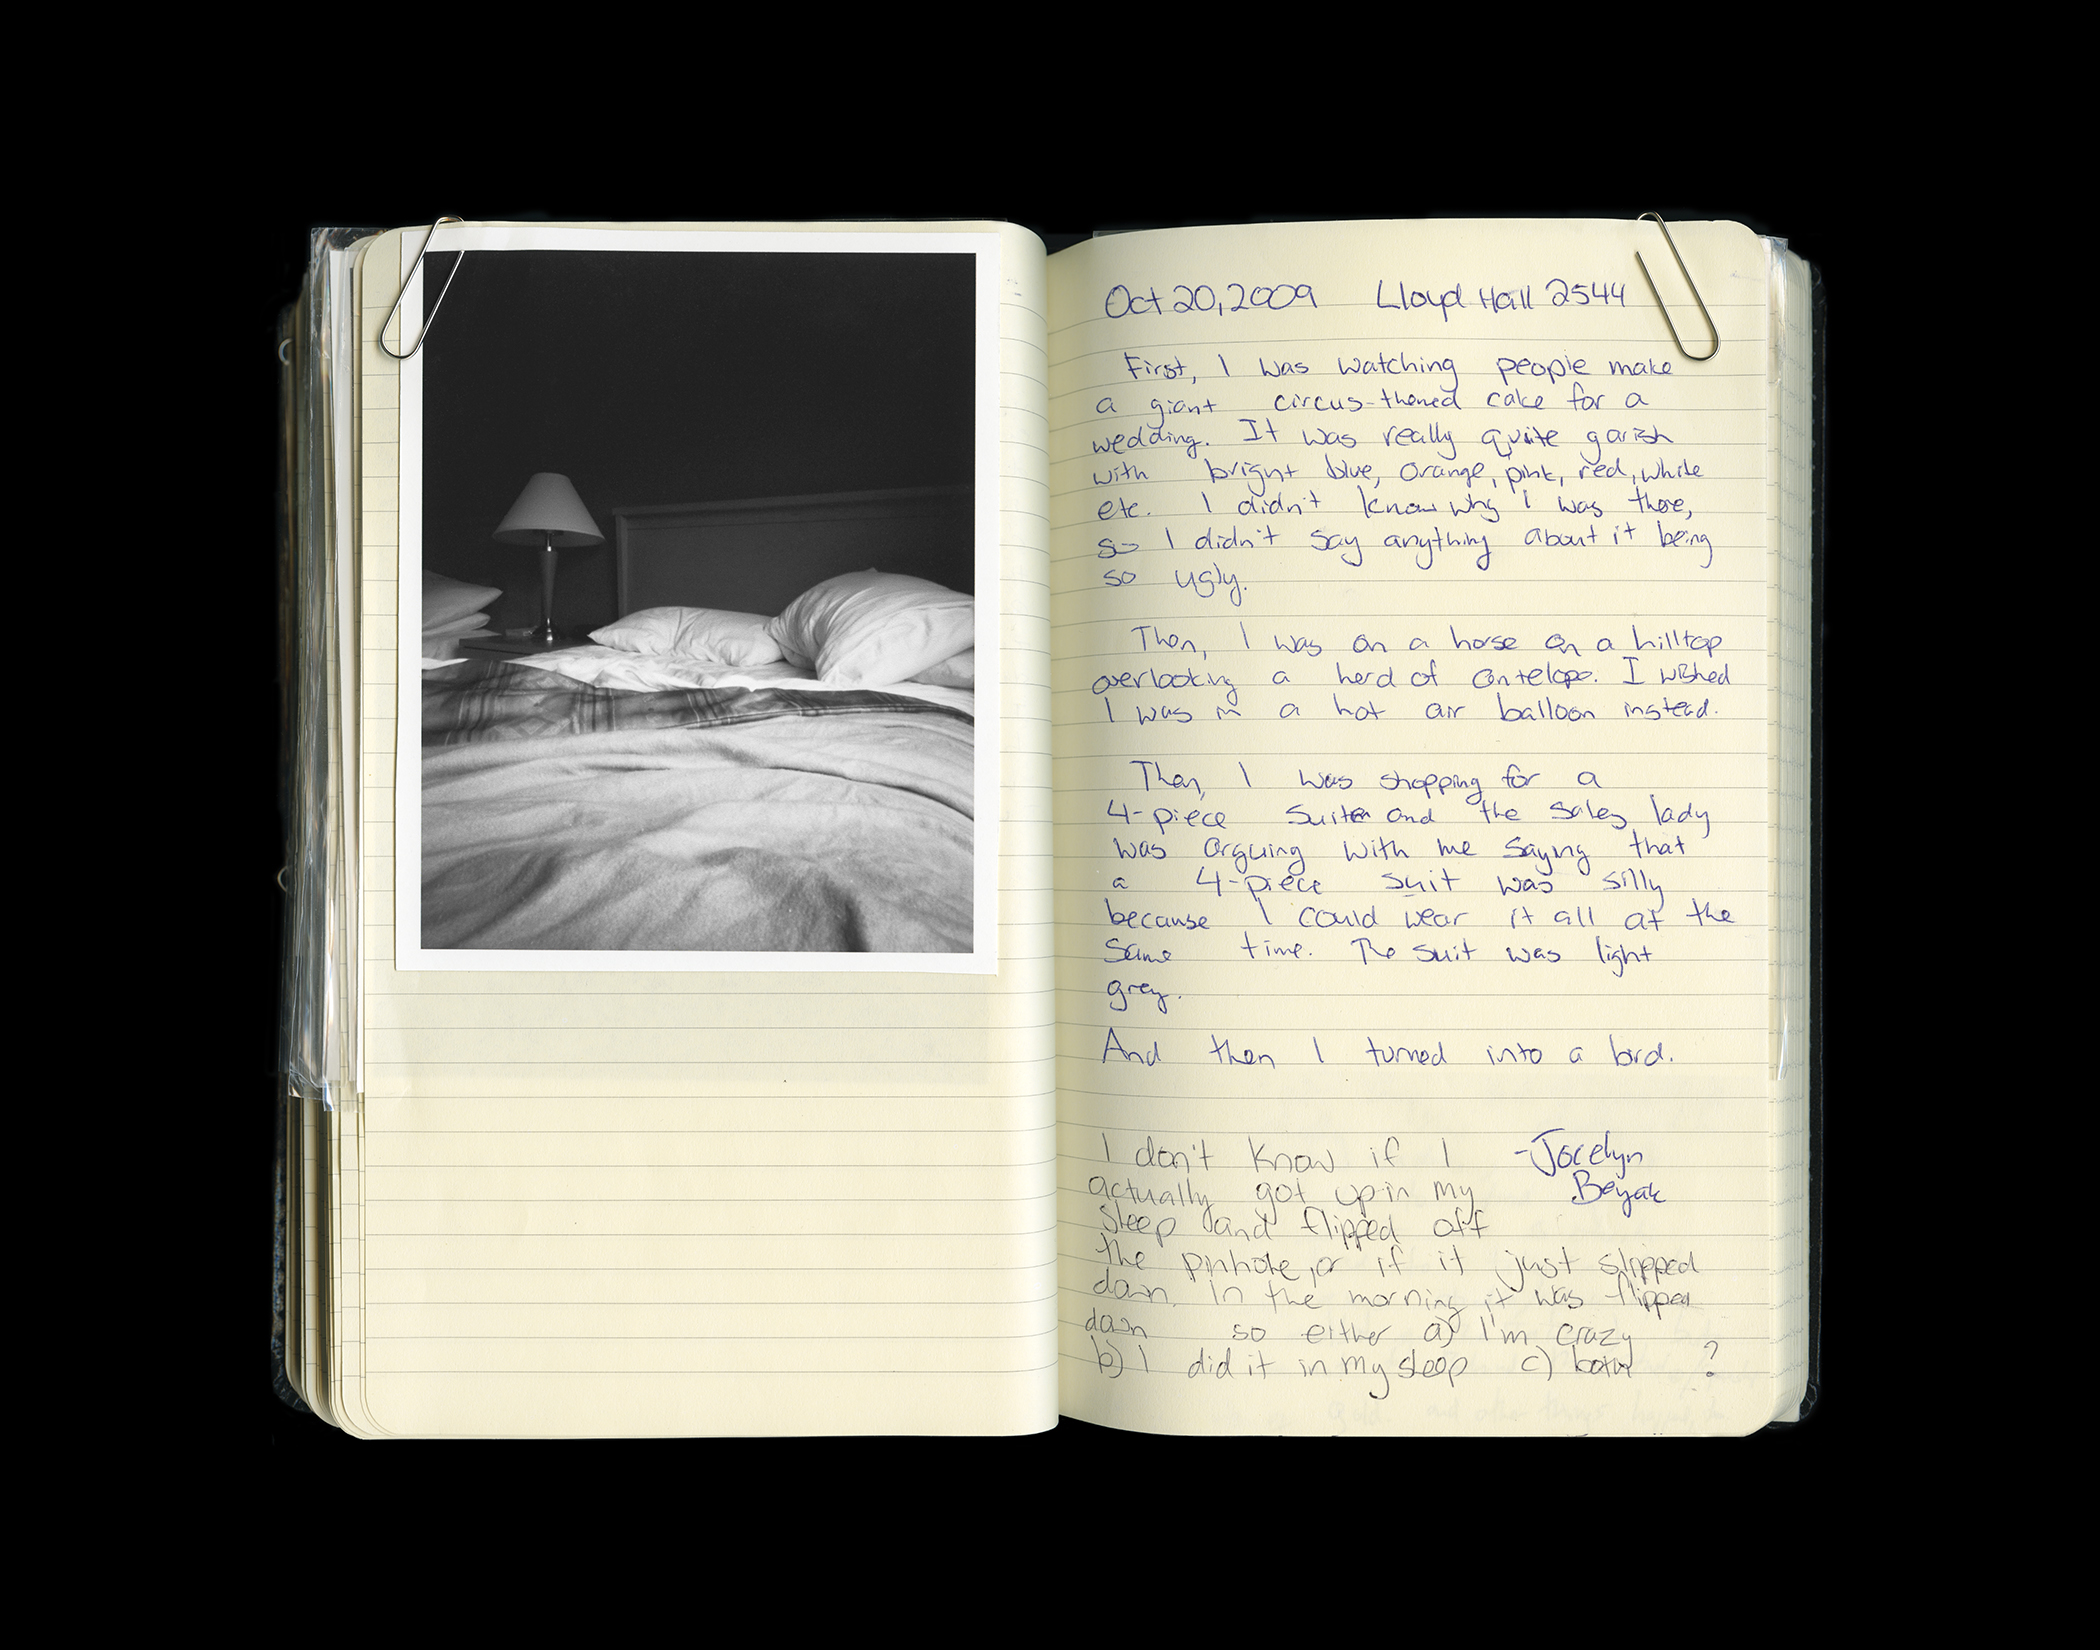 Oct 20, 2009 Lloyd Hall 2544
First, I was watching people make
a giant circus-themed cake for a
wedding. It was really quite garish
with bright blue, orange, pink, red, white
etc. I didn't know why I was there,
so I didn't say anything about it being
so ugly.
Then, I was on a horse on a hilltop
overlooking a herd of antelope. I wished
I was in a hot air balloon instead.
Then, I was shopping for a
4-piece suit and the sales lady
was arguing with me saying that
a 4-piece suit was silly
because I could wear it all at the
same time. The suit was light
grey.
And then I turned into a bird.
-Jocelyn
Beyak
I don't know if I
actually got up in my
sleep and flipped off
the pinhole, or if it just slipped
down. In the morning it was flipped
down so either a) I'm crazy
b) I did it in my sleep c) both ?